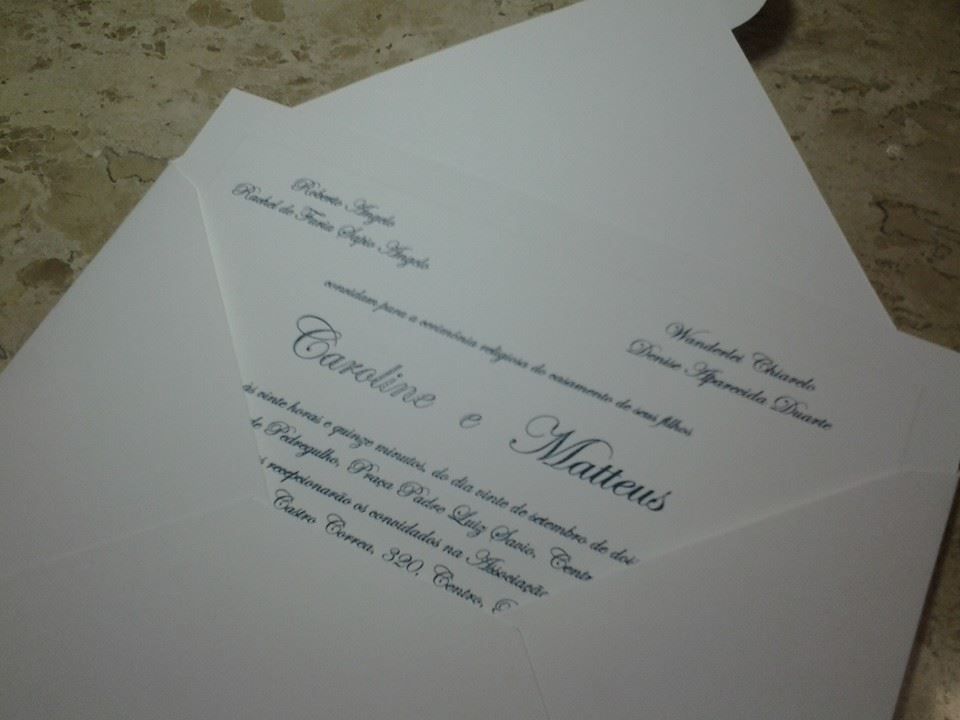 Roberto Angelo
Rachel de Faria Sapio Angelo
Wanderlei Chiarelo
Denise Aparecida Duarte
convidam para a cerimônia religiosa do casamento de seus filhos
Caroline e Matteus
às vinte horas e quinze minutos, do dia vinte de setembro de doi
de Pedregulho, Praça Padre Luiz Savio, Centr
recepcionarão os convidados na Associação
Castro Correa, 320, Centro,